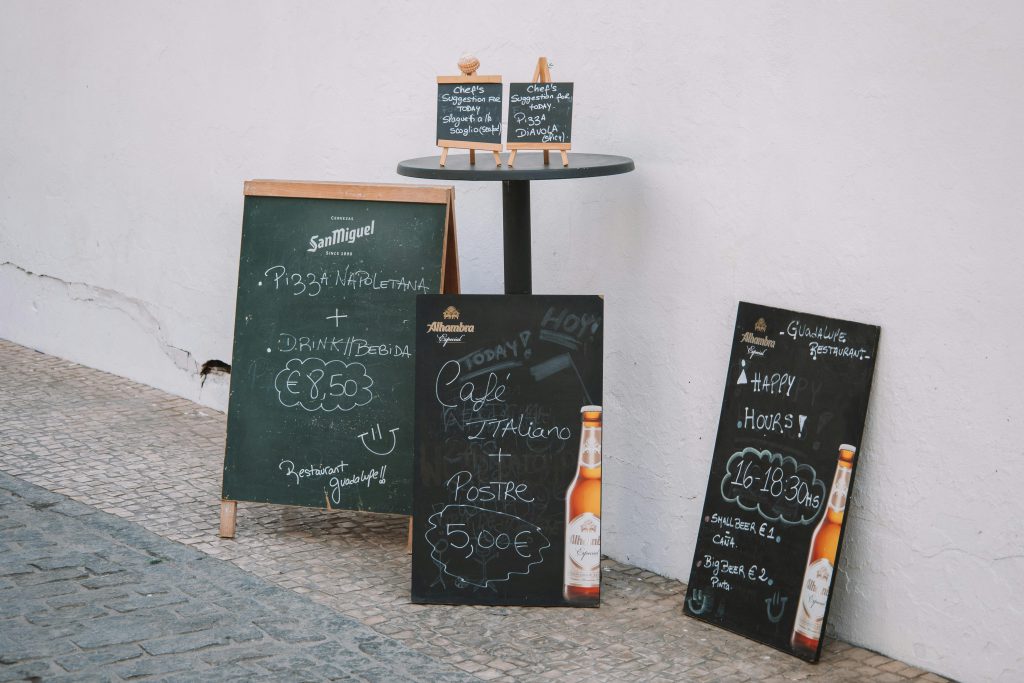 Chef's
Suggestion For
TODAY
Slaguefi a llo
scoglio (Seafood)
Chef's
Suggestion for
TODAY.
Pizza
DiAVOLA
(Spicy).
CERVEZAS
SanMiguel
SINCE 1890
. Pizza NAPOLETANA
+
. DRINK//BEBIDA
€8,50
Restaurant
Guadalupe!!
Alhambra
Especial
HOY!
TODAY!
Café
ITALiano
+
POSTRE
5,00€
Alhambra
Especial
Alhambra
Especial
- GUADALUPE
RESTAURANT -
HAPPY
HOURS!
16-18:30HS
SMALL BEER €1.
CAÑA.
BIG BEER €2.
Pinta.
Alhambra
Especial